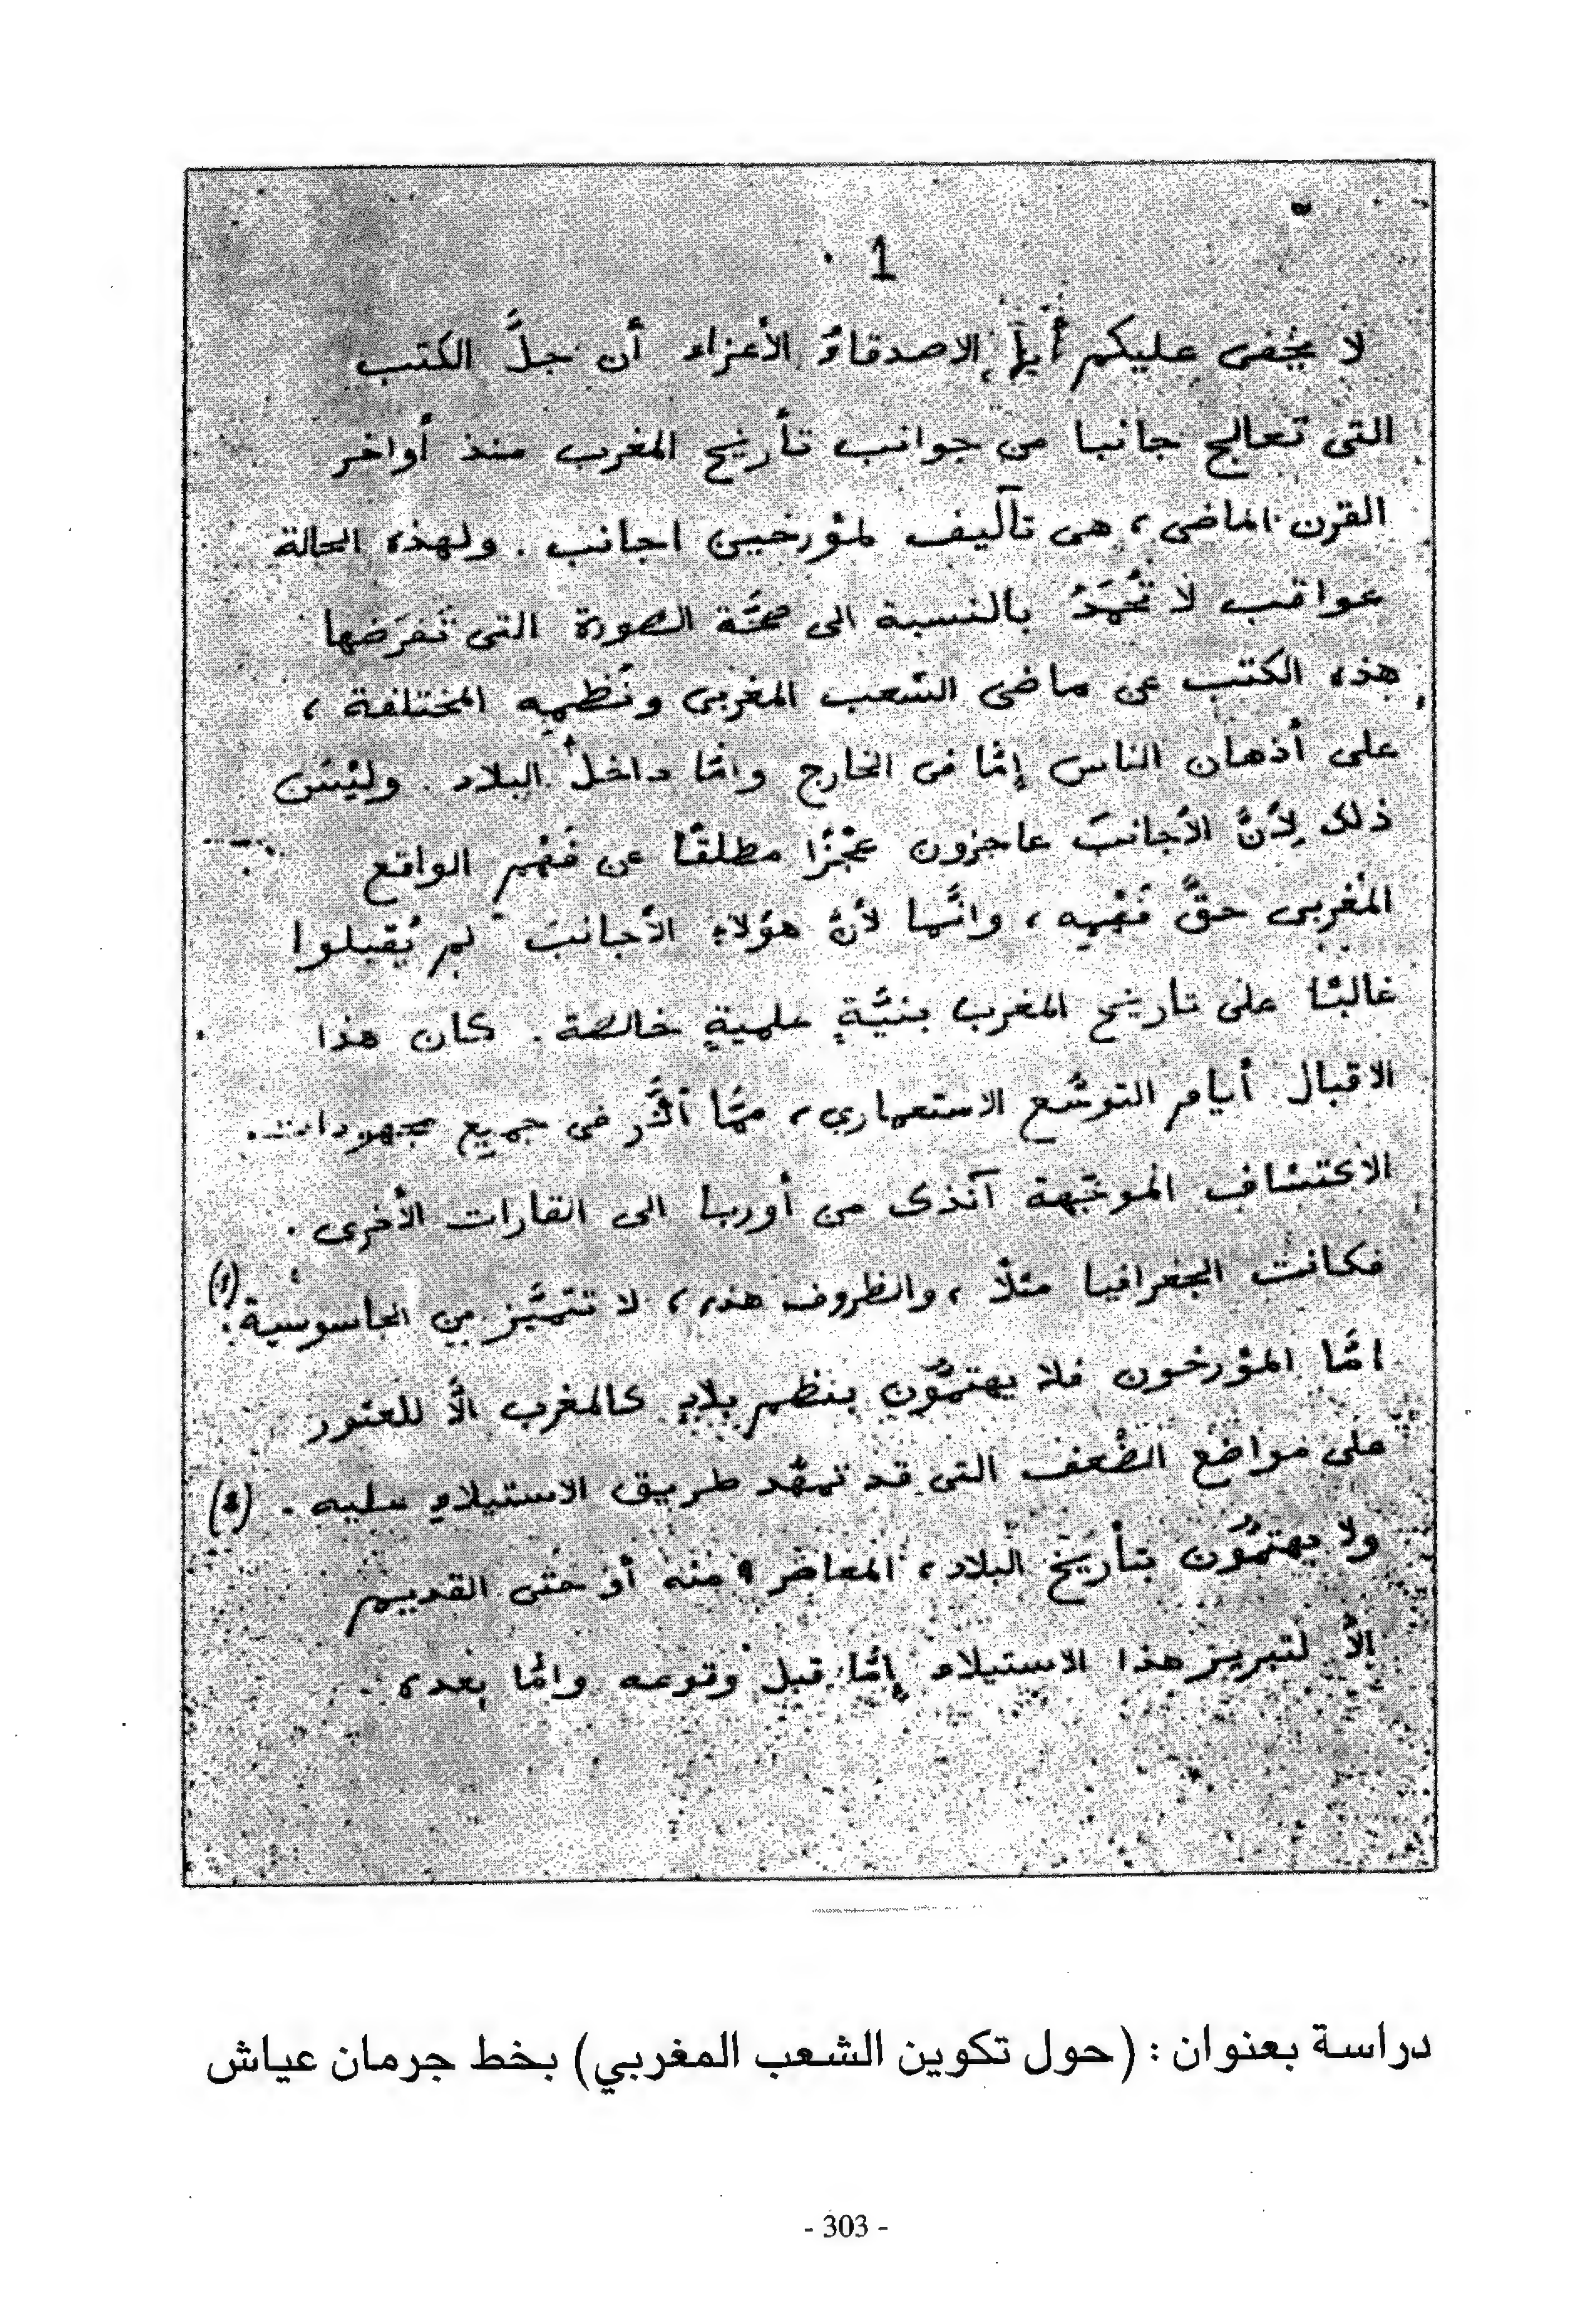 1
لا يخفى عليكم أيها الاصدقاءُ الأعزاء أن جلَّ الكتب
التى تُعالج جانبا من جوانب تأريخ المغرب منذ أواخر
القرن الماضى، هى تآليف لمؤرخيين اجانب. ولهذه الحالة
عواقب لا تُحْمَدُ بالنسبة الى صحَّة الصّورة التى تَفرَضها
هذه الكتب عن ماضى الشعب المغربى ونُظمِه المختلفة،
على أذهان الناس إمَّا فى الخارج وامَّا داخلَ البلاد. وليْسَ
ذلك لِأنَّ الأجانبَ عاجزون عَجْزًا مطلقًا عن فَهْم الواقع
المغربى حقَّ فَهْمِه، وانَّما لأنَّ هؤلاء الأجانبَ لم يُقبلوا
غالبًا على تاريخ المغرب بنيَّةٍ علميةٍ خالصة. كان هذا
الاقبال أيام التوسُّع الاستعماري، ممَّا أثَّر فى جميع مجهودات
الأكتشاف الموجَّهة آنذاك من أوربا الى القارات الأخرى.
فكانت الجغرافيا مثلًا، والظروف هذه، لا تتميَّز من الجاسوسية. (1)
امَّا المؤرخون فلا يهتمُّون بنظم بلادٍ كالمغرب الَّا للعثور
على مواضع الضُّعف التى قد تمهِّد طريق الاستيلاءِ عليه. (2)
ولا يهتمُّون بتأريخ البلاد، المعاصر منه أو حتى القديم
الَّا لتبرير هذا الاستيلاء إمَّا قبل وقوعه وامَّا بعده.
دراسة بعنوان : (حول تكوين الشعب المغربي) بخط جرمان عياش
- 303 -